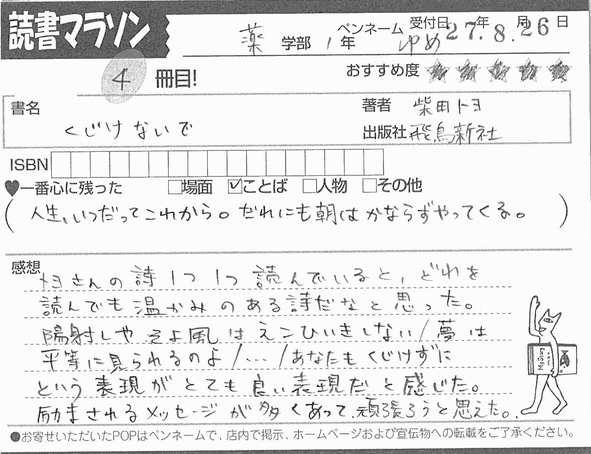 読書マラソン
薬 学部 1年 ペンネーム ゆめ 受付日 27年 8月 26日
4 冊目! おすすめ度 ★★★★★
書名 くじけないで
著者 柴田トヨ
出版社 飛鳥新社
ISBN
♥一番心に残った □場面 ☑ことば □人物 □その他
(人生、いつだってこれから。だれにも朝はかならずやってくる。)
感想
トヨさんの詩1つ1つ読んでいると、どれを
読んでも温かみのある詩だなと思った。
陽射しやそよ風はえこひいきしない/夢は
平等に見られるのよ/…/あなたもくじけずに
という表現がとても良い表現だと感じた。
励まされるメッセージが多くあって、頑張ろうと思えた。
●お寄せいただいたPOPはペンネームで、店内で掲示、ホームページおよび宣伝物への転載をご了承ください。